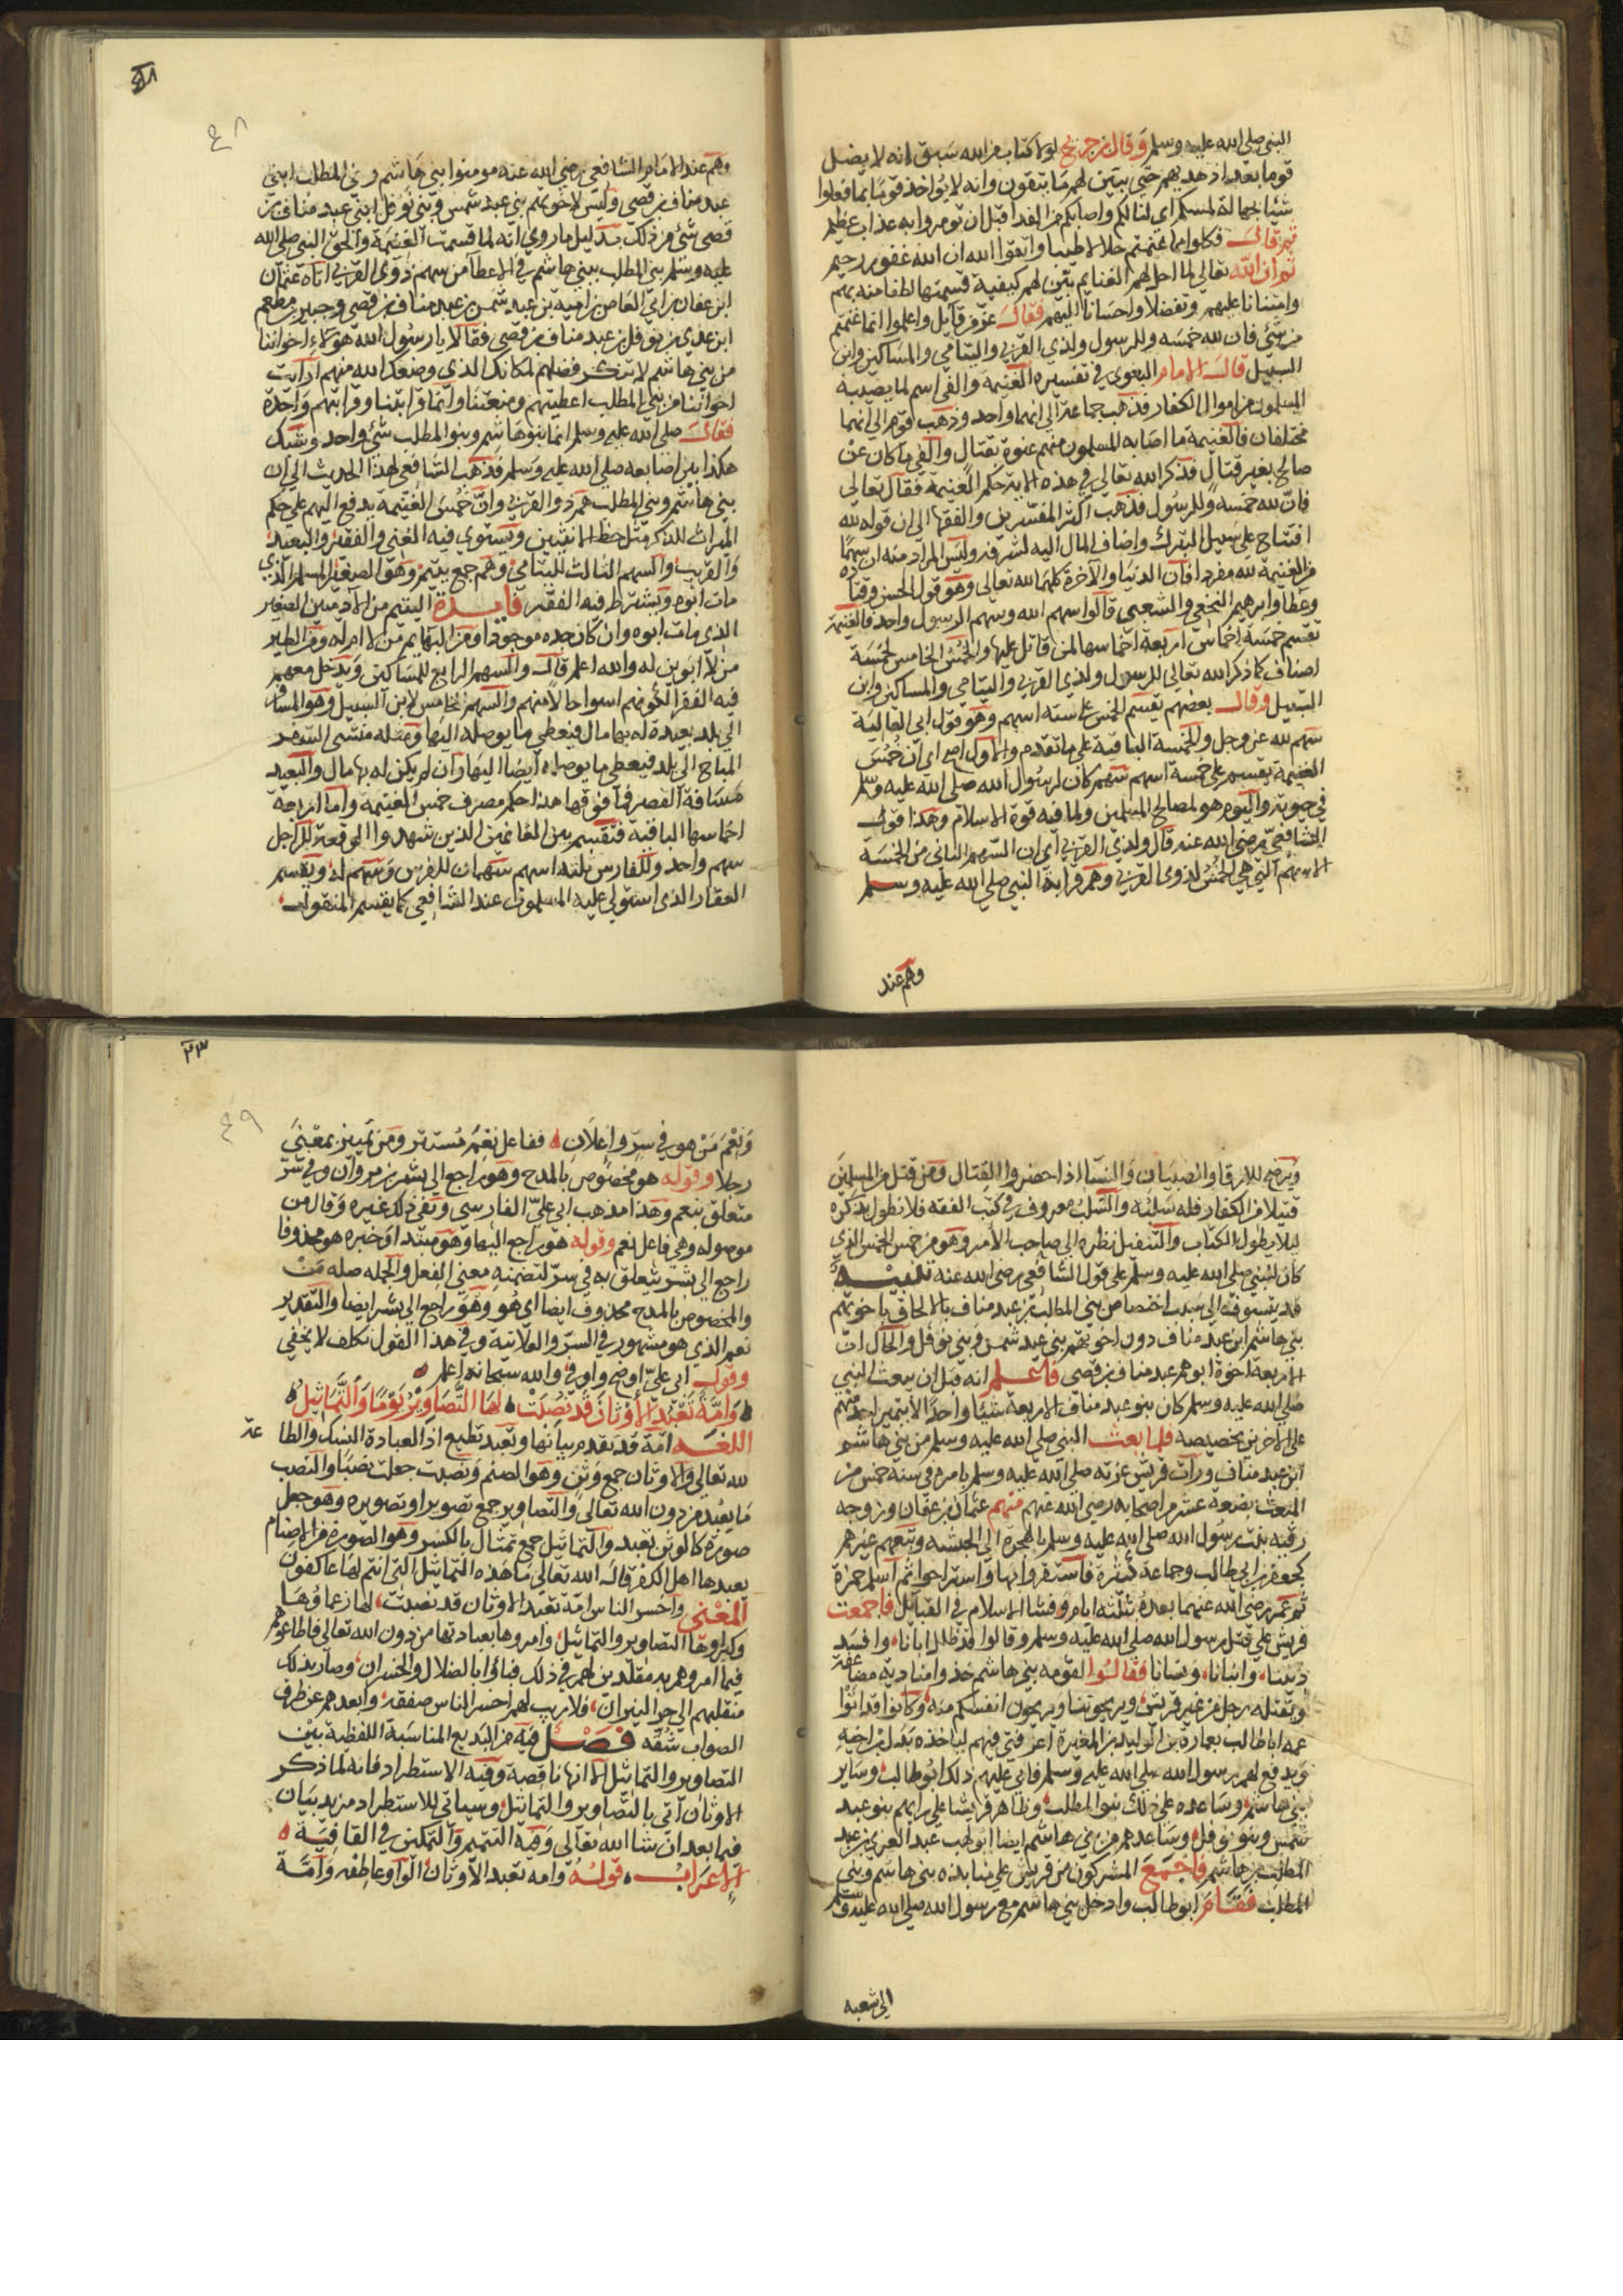 النبي صلى الله عليه وسلم وقال بن جريج لولا كتاب من الله سبق انه لا يضل
قوما بعد اذ هديهم حتى يبين لهم ما يتقون وانه لا يؤاخذ قوما بما فعلوا
شيئا بجهالة لمسكم اي لنالكم واصابكم من الفدا قبل ان تومروا به عذاب عظيم
ثم قال فكلوا مما غنمتم حلالا طيبا واتقوا الله ان الله غفور رحيم
ثم ان الله تعالى لما احل لهم الغنايم بين لهم كيفية قسمتها لطفا منه بهم
وامتنانا عليهم وتفضلا واحسانا اليهم فقال عز من قايل واعلموا انما غنمتم
من شي فان لله خمسه وللرسول ولذي القربى واليتامى والمساكين وابن
السبيل قال الامام البغوي في تفسيره الغنيمة والفي اسم لما يصيبه
المسلمون من اموال الكفار فذهب جماعة الى انهما واحد وذهب قوم الى انهما
مختلفان فالغنيمة ما اصابه المسلمون منهم عنوة بقتال والفي ما كان عن
صلح بغير قتال فذكر الله تعالى في هذه الاية حكم الغنيمة فقال تعالى
فان لله خمسه وللرسول فذهب اكثر المفسرين والفقها الى ان قوله لله
افتتاح على سبيل التبرك واضاف المال اليه لشرفه وليس المراد منه ان سهما
من الغنيمة لله مفردا فان الدنيا والاخرة كلها لله تعالى وهو قول الحسن وقتادة
وعطا وابرهيم النخعي والشعبي قالوا سهم الله وسهم الرسول واحد فالغنيمة
تقسم خمسة اخماس اربعة اخماسها لمن قاتل عليها والخمس الخامس لخمسة
اصناف كما ذكر الله تعالى للرسول ولذي القربى واليتامى والمساكين وابن
السبيل وقال بعضهم يقسم الخمس على ستة اسهم وهو قول ابي العالية
سهم لله عز وجل والخمسة الباقية على ما تقدم والاول اصح اي ان خمس
الغنيمة يقسم على خمسة اسهم سهم كان لرسول الله صلى الله عليه وسلم
في حيوته واليوم هو لمصالح المسلمين ولما فيه قوة الاسلام وهكذا قول
الشافعي رضي الله عنه قال ولذي القربى اي ان السهم الثاني من الخمسة
الاسهم التي هي الخمس لذوي القربى وهم قرابة النبي صلى الله عليه وسلم
وهم عند
٤٨
وهم عند الامام الشافعي رضي الله عنه مومنوا بني هاشم وبني المطلب ابني
عبد مناف بن قصي وليس لاخوتهم بني عبد شمس وبني نوفل ابني عبد مناف بن
قصي شي من ذلك بدليل ما روي انه لما قسمت الغنيمة والحق النبي صلى الله
عليه وسلم بني المطلب ببني هاشم في الاعطا من سهم ذوي القربى اتاه عثمان
ابن عفان بن ابي العاص بن امية بن عبد شمس بن عبد مناف بن قصي وجبير بن مطعم
ابن عدي بن نوفل بن عبد مناف بن قصي فقالا يا رسول الله هولاء اخواننا
من بني هاشم لا ننكر فضلهم لمكانك الذي وضعك الله منهم ارايت
اخواننا من بني المطلب اعطيتهم ومنعتنا وانما قرابتنا وقرابتهم واحدة
فقال صلى الله عليه وسلم انما بنو هاشم وبنو المطلب شي واحد وشبك
هكذا بين اصابعه صلى الله عليه وسلم فذهب الشافعي لهذا الحديث الى ان
بني هاشم وبني المطلب هم ذوو القربى وان خمس الغنيمة يدفع اليهم على حكم
الميراث للذكر مثل حظ الانثيين ويستوي فيه الغني والفقير والبعيد
والقريب والسهم الثالث لليتامى وهم جمع يتيم وهو الصغير المسلم الذي
مات ابوه ويشترط فيه الفقر فايدة اليتيم من الادميين الصغير
الذي مات ابوه وان كان جده موجودا ومن البهايم من لا ام له ومن الطير
من لا ابوين له والله اعلم قال والسهم الرابع للمساكين ويدخل معهم
فيه الفقرا لكونهم اسوا حالا منهم والسهم الخامس لابن السبيل وهو المسافر
الى بلد بعيدة له بها مال فيعطى ما يوصله اليها ومثله منشي السفر
المباح الى بلد فيعطى ما يوصله ايضا اليها وان لم يكن له بها مال والبعيد
مسافة القصر فما فوقها هذا حكم مصرف خمس الغنيمة واما اربعة
اخماسها الباقية فتقسم بين الغانمين الذين شهدوا الوقعة للراجل
سهم واحد وللفارس ثلثه اسهم سهمان للفرس وسهم له ويقسم
العقار الذي استولى عليه المسلمون عند الشافعي كما يقسم المنقول
ويرضخ للارقا والصبيان والنسا اذا حضروا القتال ومن قتل من المسلمين
قتيلا من الكفار فله سلبه والسلب معروف في كتب الفقه فلا نطول بذكره
ليلا يطول الكتاب والتنفيل نظره الى صاحب الامر وهو من خمس الخمس الذي
كان للنبي صلى الله عليه وسلم على قول الشافعي رضي الله عنه تنبيه
قد يتشوف الى سبب اختصاص بني المطلب بن عبد مناف بالالحاق باخوتهم
بني هاشم ابن عبد مناف دون اخوتهم بني عبد شمس وبني نوفل والحال ان
الاربعة اخوة ابوهم عبد مناف بن قصي فاعلم انه قبل ان يبعث النبي
صلى الله عليه وسلم كان بنو عبد مناف الاربعة شيئا واحدا لا يتميز احد منهم
على الاخر بخصيصه فلما بعث النبي صلى الله عليه وسلم من بني هاشم
ابن عبد مناف ورات قريش عزته صلى الله عليه وسلم بامره في سنة خمس من
المبعث بضعة عشر من اصحابه رضي الله عنهم منهم عثمان بن عفان وزوجه
رقية بنت رسول الله صلى الله عليه وسلم بالهجرة الى الحبشه وتبعهم غيرهم
كجعفر بن ابي طالب وجماعة كثيرة فاستقروا بها واستراحوا ثم اسلم حمزة
ثم عمر رضي الله عنهما بعده بثلثة ايام وفشا الاسلام في القبايل فاجمعت
قريش على قتل رسول الله صلى الله عليه وسلم وقالوا قد ظلل ابانا وافسد
ديننا وابنانا ونسانا فقالوا لقومه بني هاشم خذوا منا دية مضاعفة
ويقتله رجل من غير قريش ويريحوننا ويريحون انفسكم منه وكانوا قد اتوا
عمه ابا طالب بعمارة بن الوليد بن المغيرة اعز فتى فيهم لياخذه بدل ابن اخيه
ويدفع لهم رسول الله صلى الله عليه وسلم فابى عليهم ذلك ابو طالب وساير
بني هاشم وساعده على ذلك بنو المطلب وظاهر قريشا على رايهم بنو عبد
شمس وبنو نوفل وساعدهم من بني هاشم ايضا ابو لهب عبد العزى بن عبد
المطلب بن هاشم واجمع المشركون من قريش على منابذة بني هاشم وبني
المطلب فقام ابو طالب وادخل بني هاشم مع رسول الله صلى الله عليه وسلم
الى شعبه
٢٣
٤٩
ونعم من هو في سر واعلان ففاعل نعم مستتر ومن تمييز بمعنى
رجلا وقوله هو مخصوص بالمدح وهو راجع الى بشر بن مروان وفي سر
متعلق بنعم وهذا مذهب ابي علي الفارسي ونفى ذلك غيره وقال من
موصوله وهي فاعل نعم وقوله هو راجع اليها وهو مبتدا وخبره هو محذوفا
راجع الى بشر يتعلق به في سر لتضمنه معنى الفعل والجمله صله من
والمخصوص بالمدح محذوف ايضا اي هو وهو راجع الى بشر ايضا والتقدير
نعم الذي هو مشهور في السر والعلانية وفي هذا القول تكلف لا يخفى
وقول ابي علي اوضح واوفى والله سبحانه اعلم
وامة تعبد الاوثان قد نصبت لها التصاوير يوما والتماثيل
اللغه امة قد تقدم بيانها وتعبد تطيع اذ العبادة النسك والطاعة
لله تعالى والاوثان جمع وثن وهو الصنم ونصبت جعلت نصبا والنصب
ما يعبد من دون الله تعالى والتصاوير جمع تصوير او تصويره وهو جعل
صورة كالوثن تعبد والتماثيل جمع تمثال بالكسر وهو الصورة من الاصنام
يعبدها اهل الكفر قال الله تعالى ما هذه التماثيل التي انتم لها عاكفون
المعنى واخسر الناس امة تعبد الاوثان قد نصبت لها زعماوها
وكبراوها التصاوير والتماثيل وامروها بعبادتها من دون الله تعالى فاطاعوهم
فيما امروهم به مقلدين لهم في ذلك فباؤا بالضلال والخسران وصار بذلك
منقلبهم الى حر النيران فلا ريب لهم اخسر الناس صفقه وابعدهم عن طرف
الصواب شقه فصل فيه من البديع المناسبة اللفظية بين
التصاوير والتماثيل الا انها ناقصة وفيه الاستطراد فانه لما ذكر
الاوثان اتى بالتصاوير والتماثيل وسياتي للاستطراد مزيد بيان
فيما بعد ان شا الله تعالى وفيه التتميم والتمكين في القافية
الاعراب قوله وامه تعبد الاوثان الواو عاطفه وامة